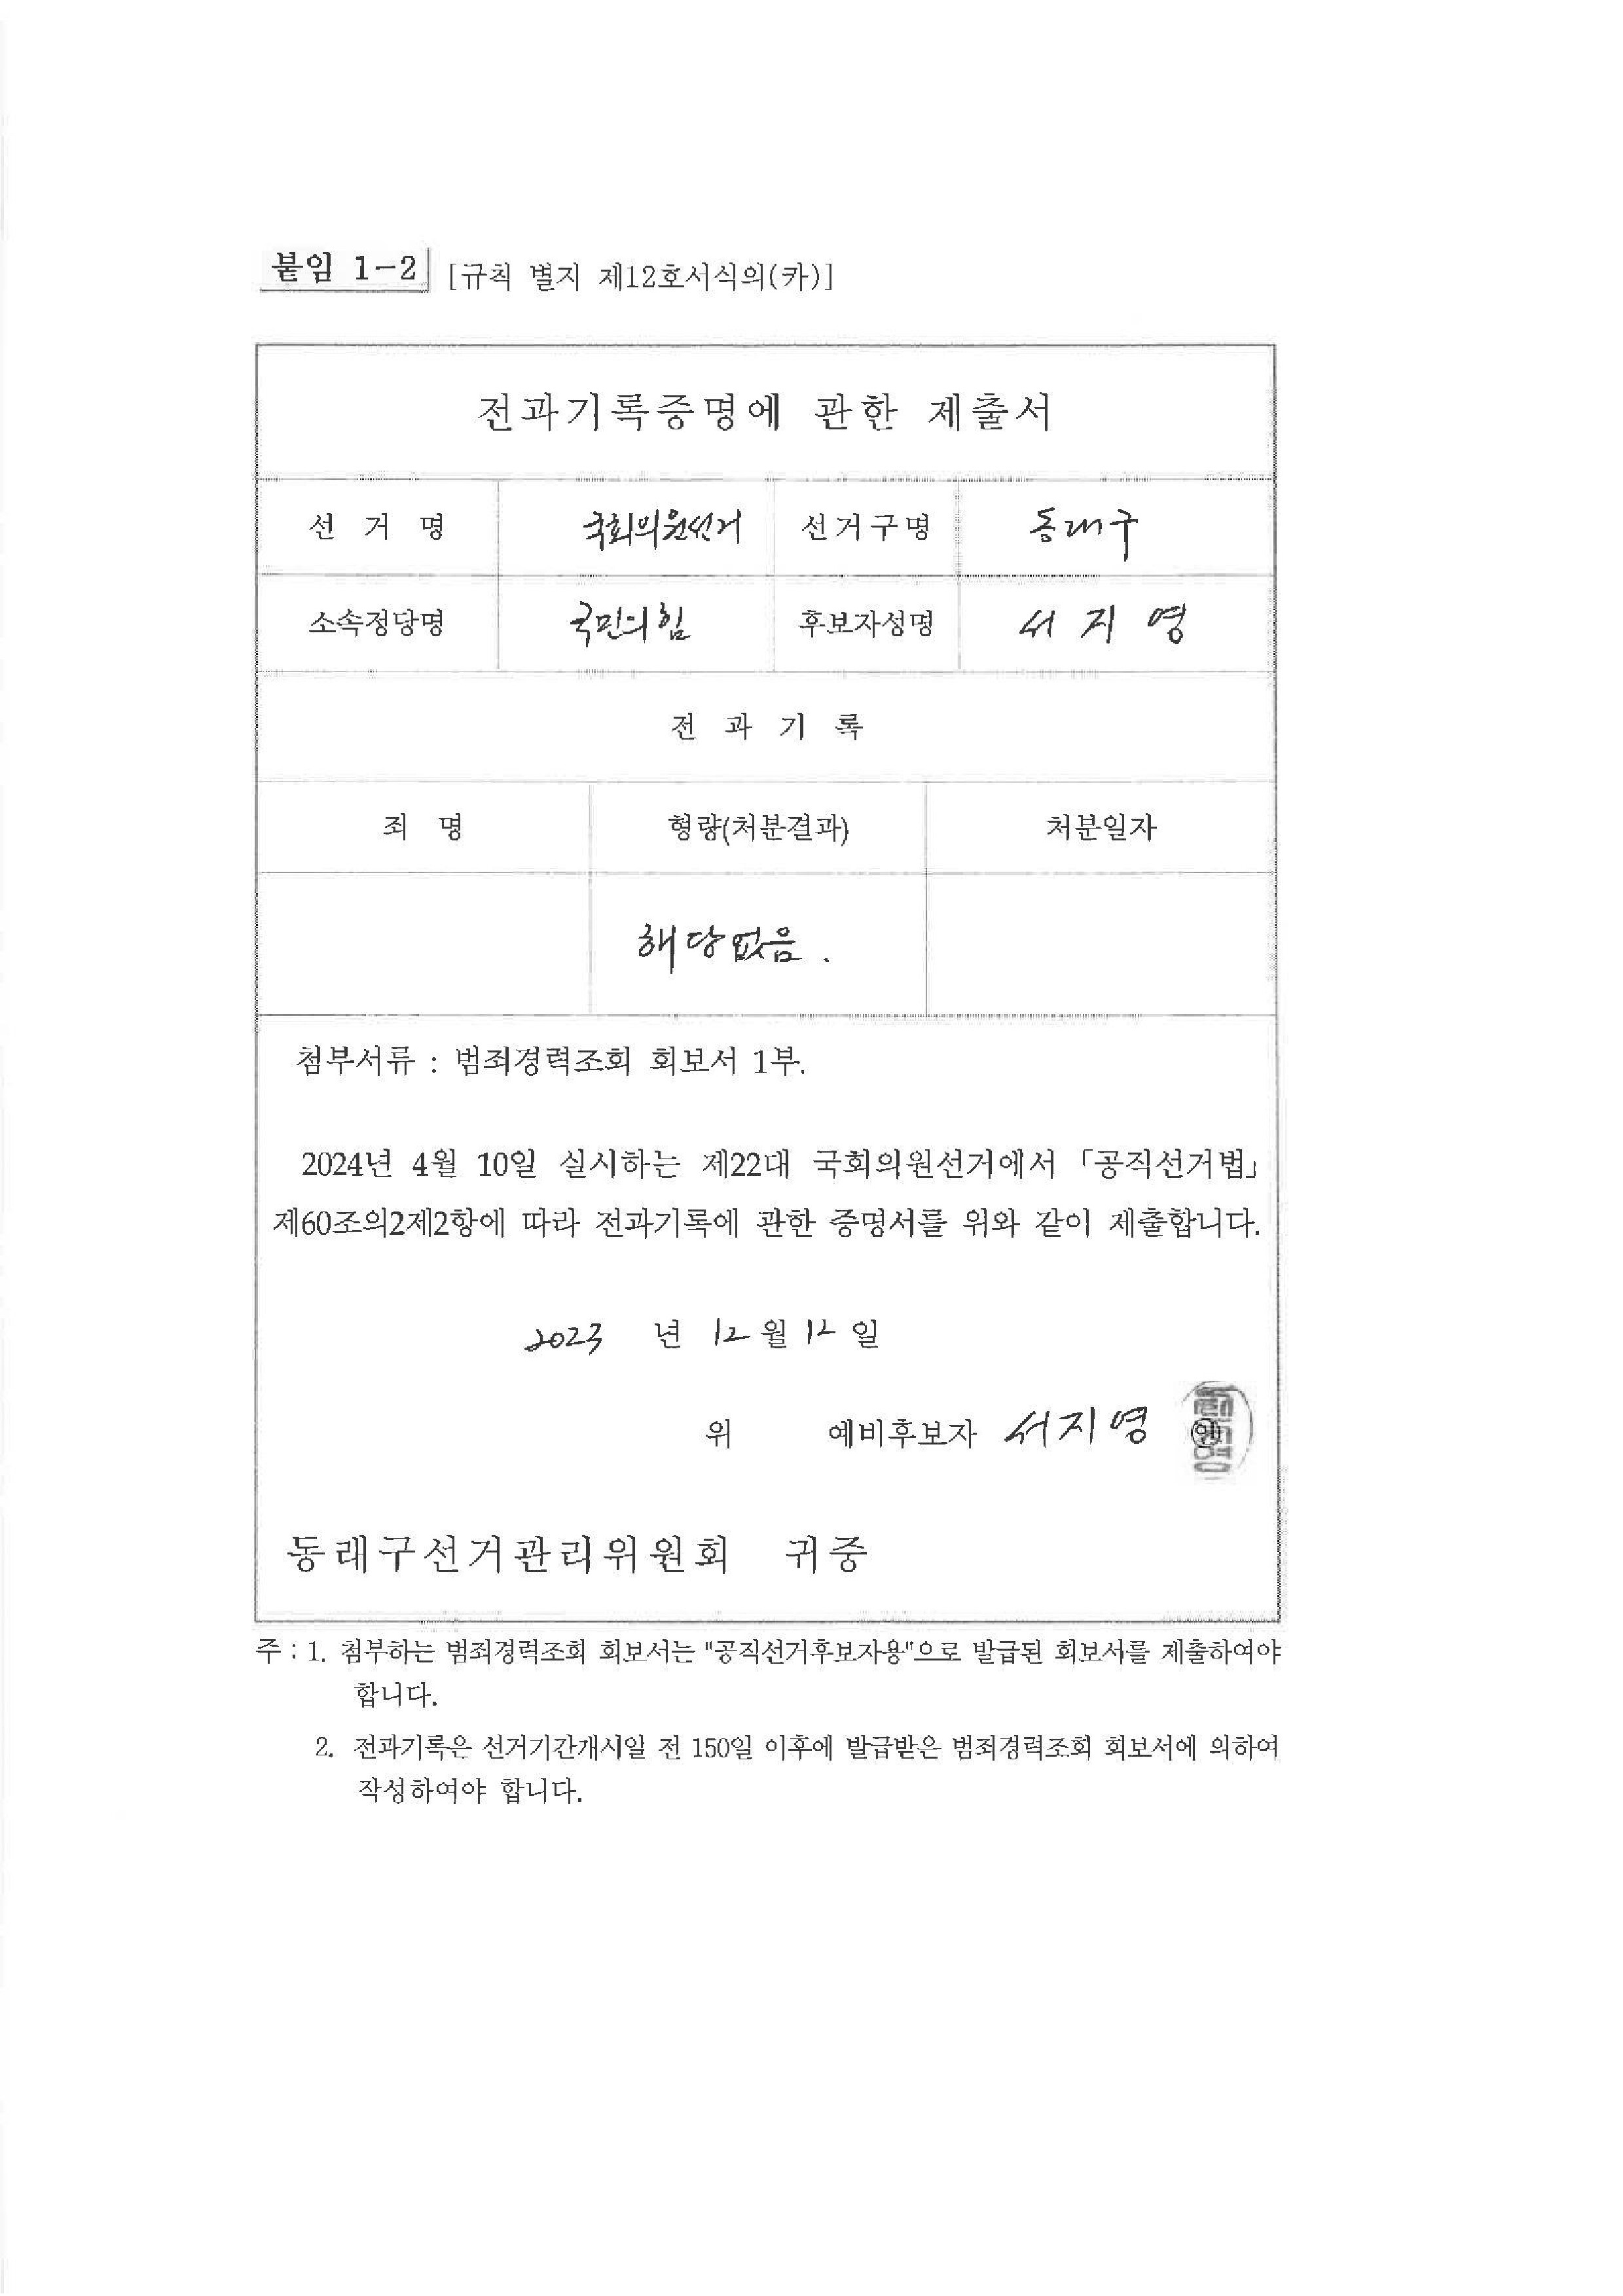 붙임 1-2 [규칙 별지 제12호서식의(카)]
전과기록증명에 관한 제출서
선 거 명 국회의원선거 선거구명 동래구
소속정당명 국민의힘 후보자성명 서 지 영
전 과 기 록
죄 명 형량(처분결과) 처분일자
해당없음.
첨부서류 : 범죄경력조회 회보서 1부.
2024년 4월 10일 실시하는 제22대 국회의원선거에서 「공직선거법」
제60조의2제2항에 따라 전과기록에 관한 증명서를 위와 같이 제출합니다.
2023 년 12 월 12 일
위 예비후보자 서지영 ㊞
동래구선거관리위원회 귀중
주 : 1. 첨부하는 범죄경력조회 회보서는 "공직선거후보자용"으로 발급된 회보서를 제출하여야
합니다.
2. 전과기록은 선거기간개시일 전 150일 이후에 발급받은 범죄경력조회 회보서에 의하여
작성하여야 합니다.